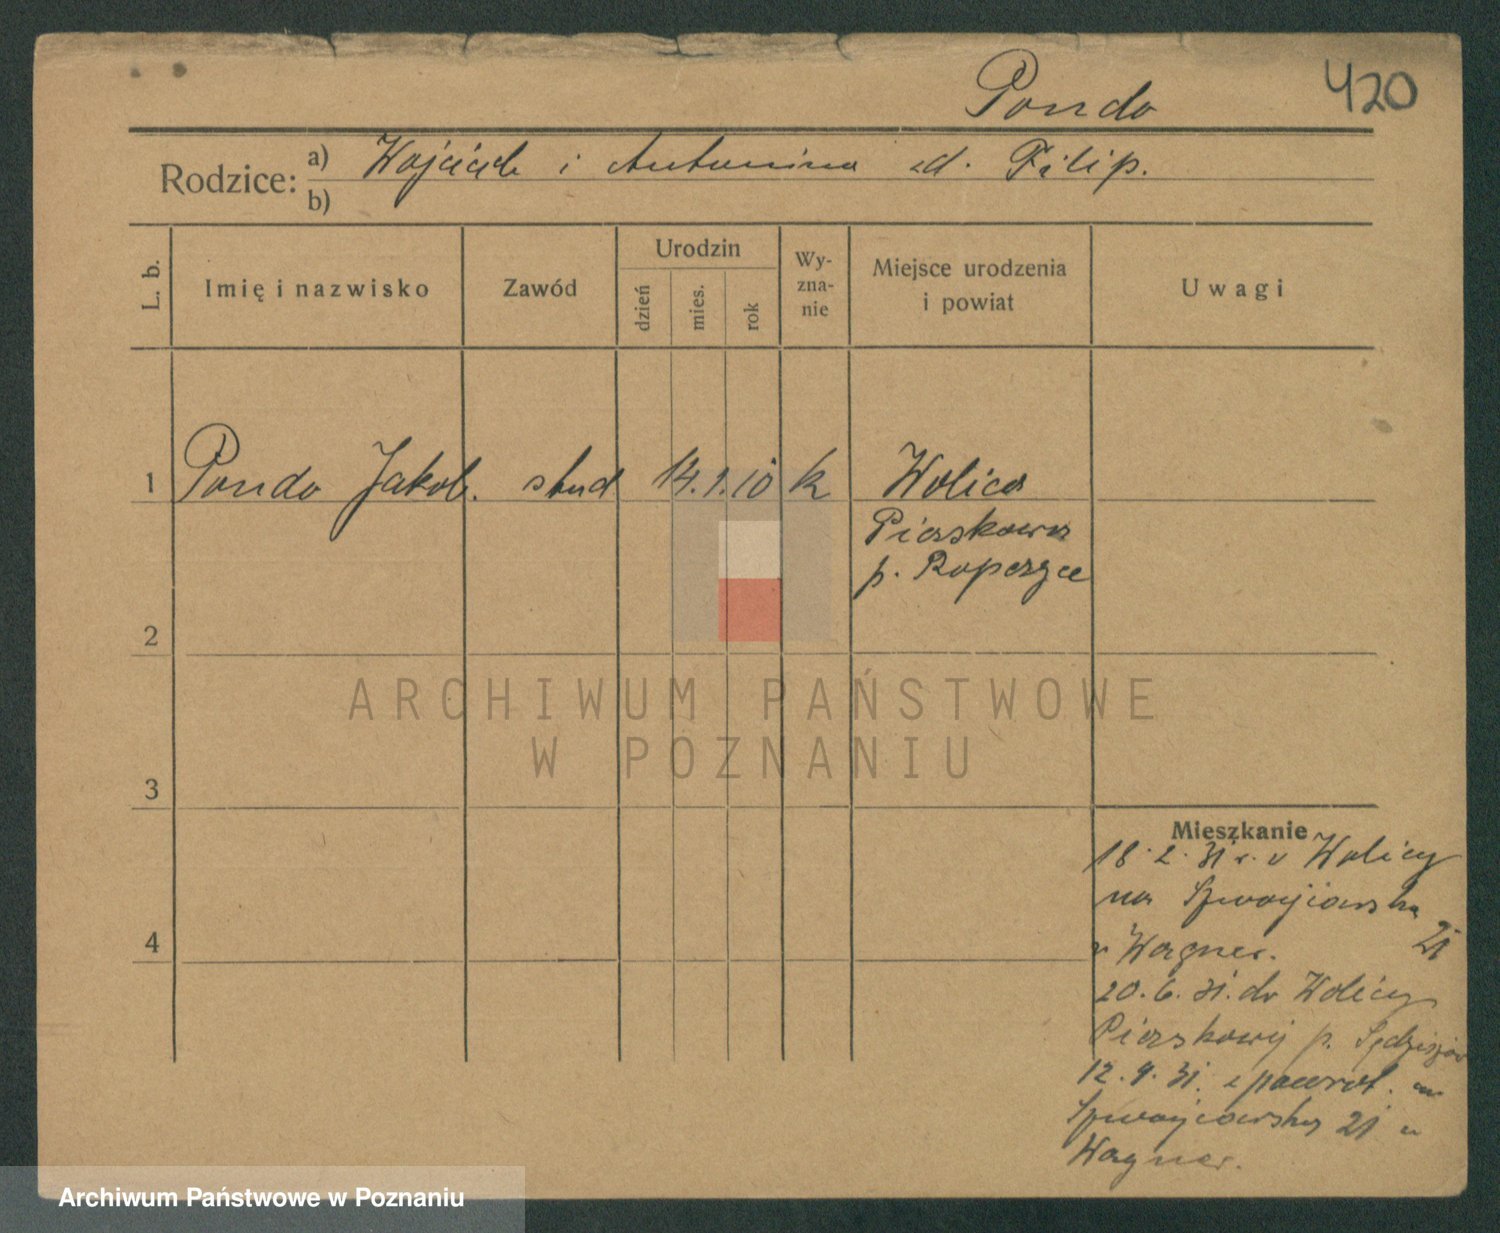 Pondo 420
Rodzice: a) Wojciech i Antonina zd. Filip.
b)
L. b. Imię i nazwisko Zawód Urodzin dzień mies. rok Wy-zna-nie Miejsce urodzenia i powiat Uwagi
1 Pondo Jakob. stud 14.1.10 k Wolica
Piaskowa
p. Ropczyce
2
3
4
Mieszkanie
18.2.31 r. z Wolicy
na Szwajcarska
21
u Wagner.
20.6.31. do Wolicy
Piaskowej p. Sędziszów
12.9.31. z powrot. na
Szwajcarską 21 u
Wagner.
ARCHIWUM PAŃSTWOWE
W POZNANIU
Archiwum Państwowe w Poznaniu